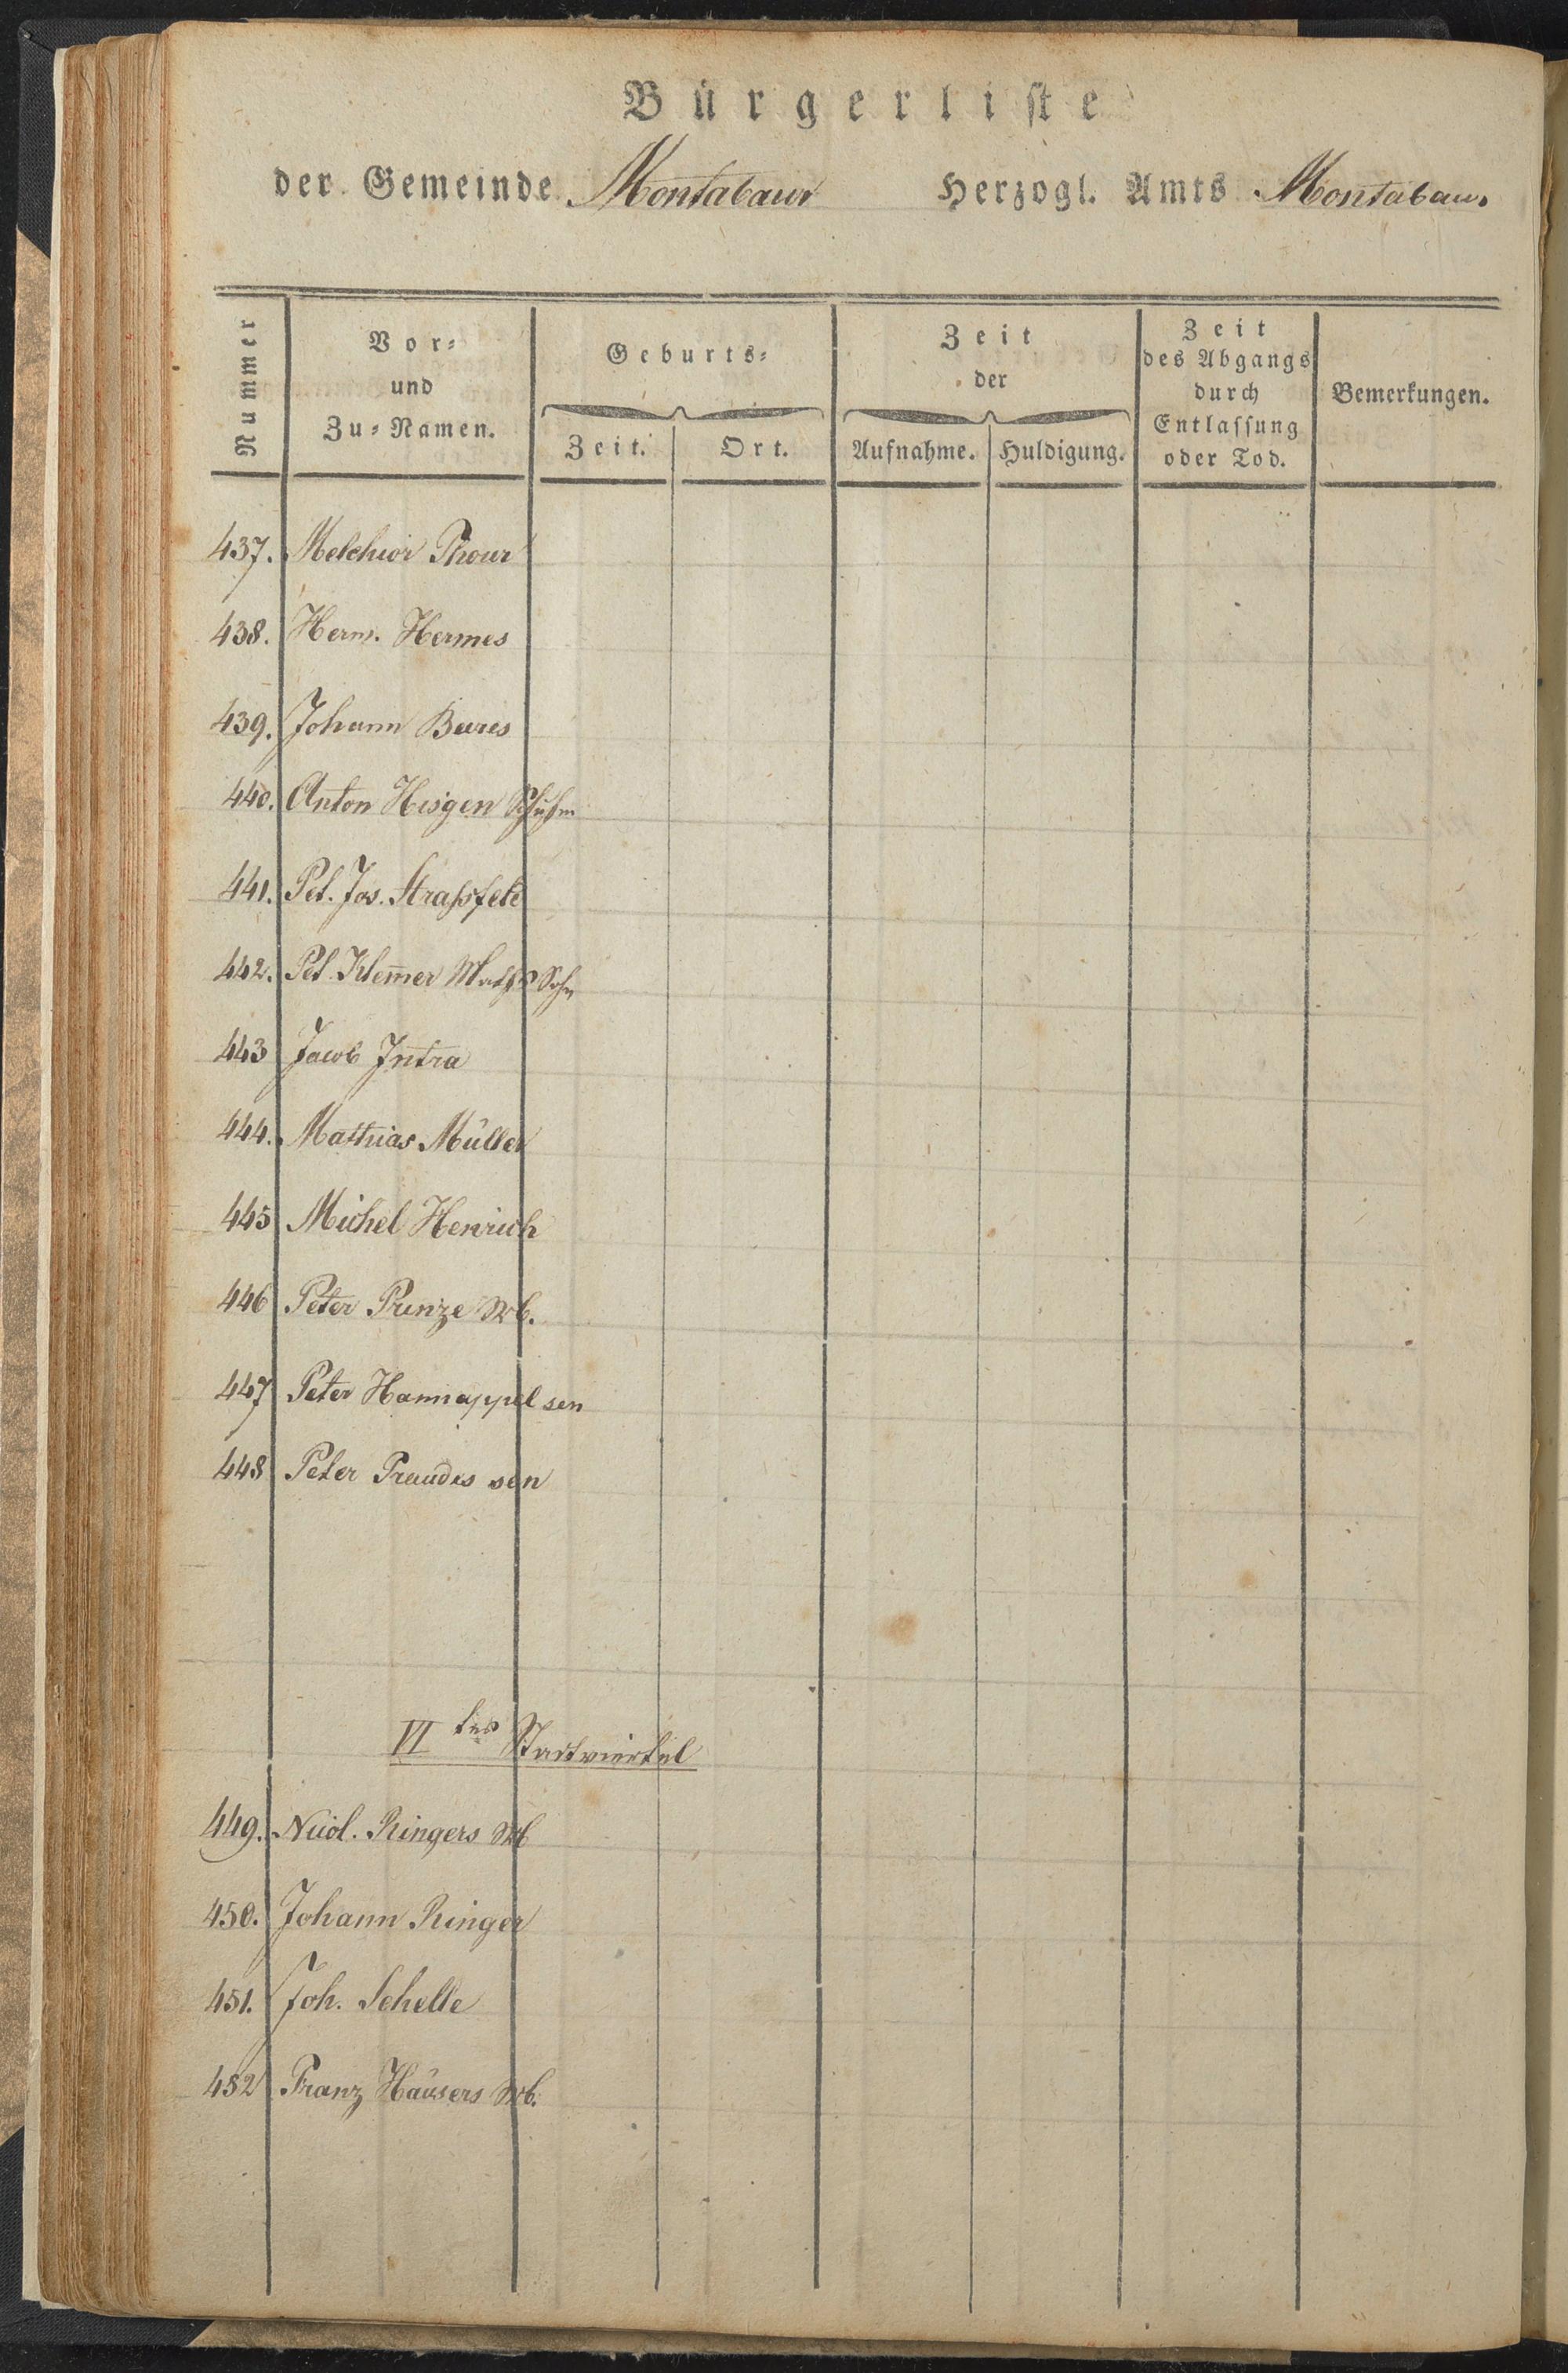 Bürgerliste
der Gemeinde Montabaur Herzogl. Amts Montabaur
Nummer
Vor-
und
Zu-Namen.
Geburts-
Zeit. Ort.
Zeit
der
Aufnahme. Huldigung.
Zeit
des Abgangs
durch
Entlassung
oder Tod.
Bemerkungen.
437. Melchior
438. Herm. Hermes
439. Johann
440. Anton Hisgen Schuhm
441. Pet. Jos. Straßfeld
442. Pet. Klem̄er Maths Sohn
443 Jacob Intra
444. Mathias Müller
445 Michel Henrich
446 Peter Prinze Wb.
447 Peter Hannappel sen
448 Peter sen
VI tes Stadtviertel
449. Nicol. Ringers Wb
450. Johann Ringer
451. Joh. Schelle
452 Franz Häusers Wb.